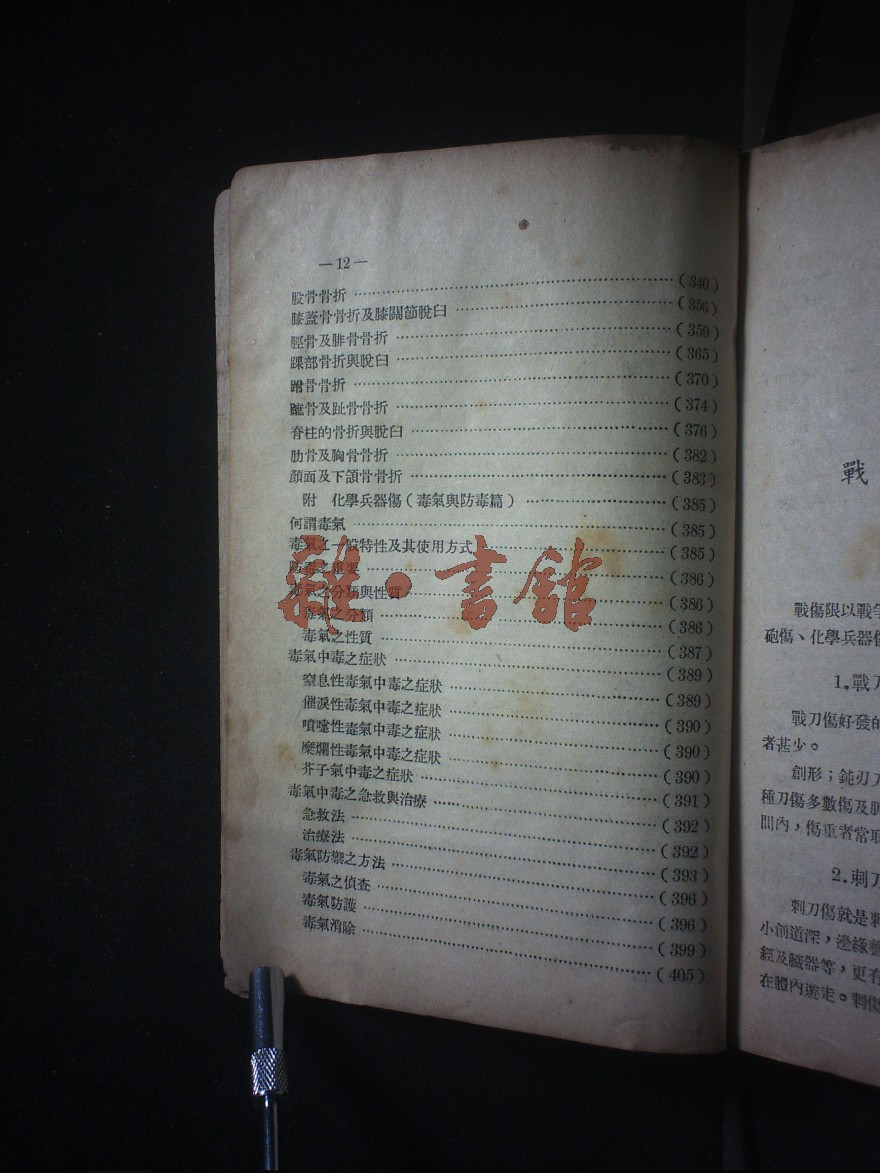 —12—
股骨骨折……(340)
膝蓋骨骨折及膝關節脫臼……(356)
脛骨及腓骨骨折……(359)
踝部骨折與脫臼……(365)
跗骨骨折……(370)
蹠骨及趾骨骨折……(374)
脊柱的骨折與脫臼……(376)
肋骨及胸骨骨折……(382)
顏面及下頜骨骨折……(383)
附　化學兵器傷(毒氣與防毒篇)……(385)
何謂毒氣……(385)
毒氣之一般特性及其使用方式……(385)
防毒之重要……(386)
毒氣之分類與性質……(386)
毒氣之分類……(386)
毒氣之性質……(387)
毒氣中毒之症狀……(389)
窒息性毒氣中毒之症狀……(389)
催淚性毒氣中毒之症狀……(390)
噴嚏性毒氣中毒之症狀……(390)
糜爛性毒氣中毒之症狀……(390)
芥子氣中毒之症狀……(391)
毒氣中毒之急救與治療……(392)
急救法……(392)
治療法……(393)
毒氣防禦之方法……(396)
毒氣之偵查……(396)
毒氣防護……(399)
毒氣消除……(405)
雜·書館
戰
戰傷限以戰爭
砲傷、化學兵器傷
1.戰刀
戰刀傷好發的
者甚少。
創形；鈍刃刀
種刀傷多數傷及肌
間內，傷重者常取
2.刺刀
刺刀傷就是刺
小創道深，邊緣整
經及臟器等，更有
在體內遊走。刺傷